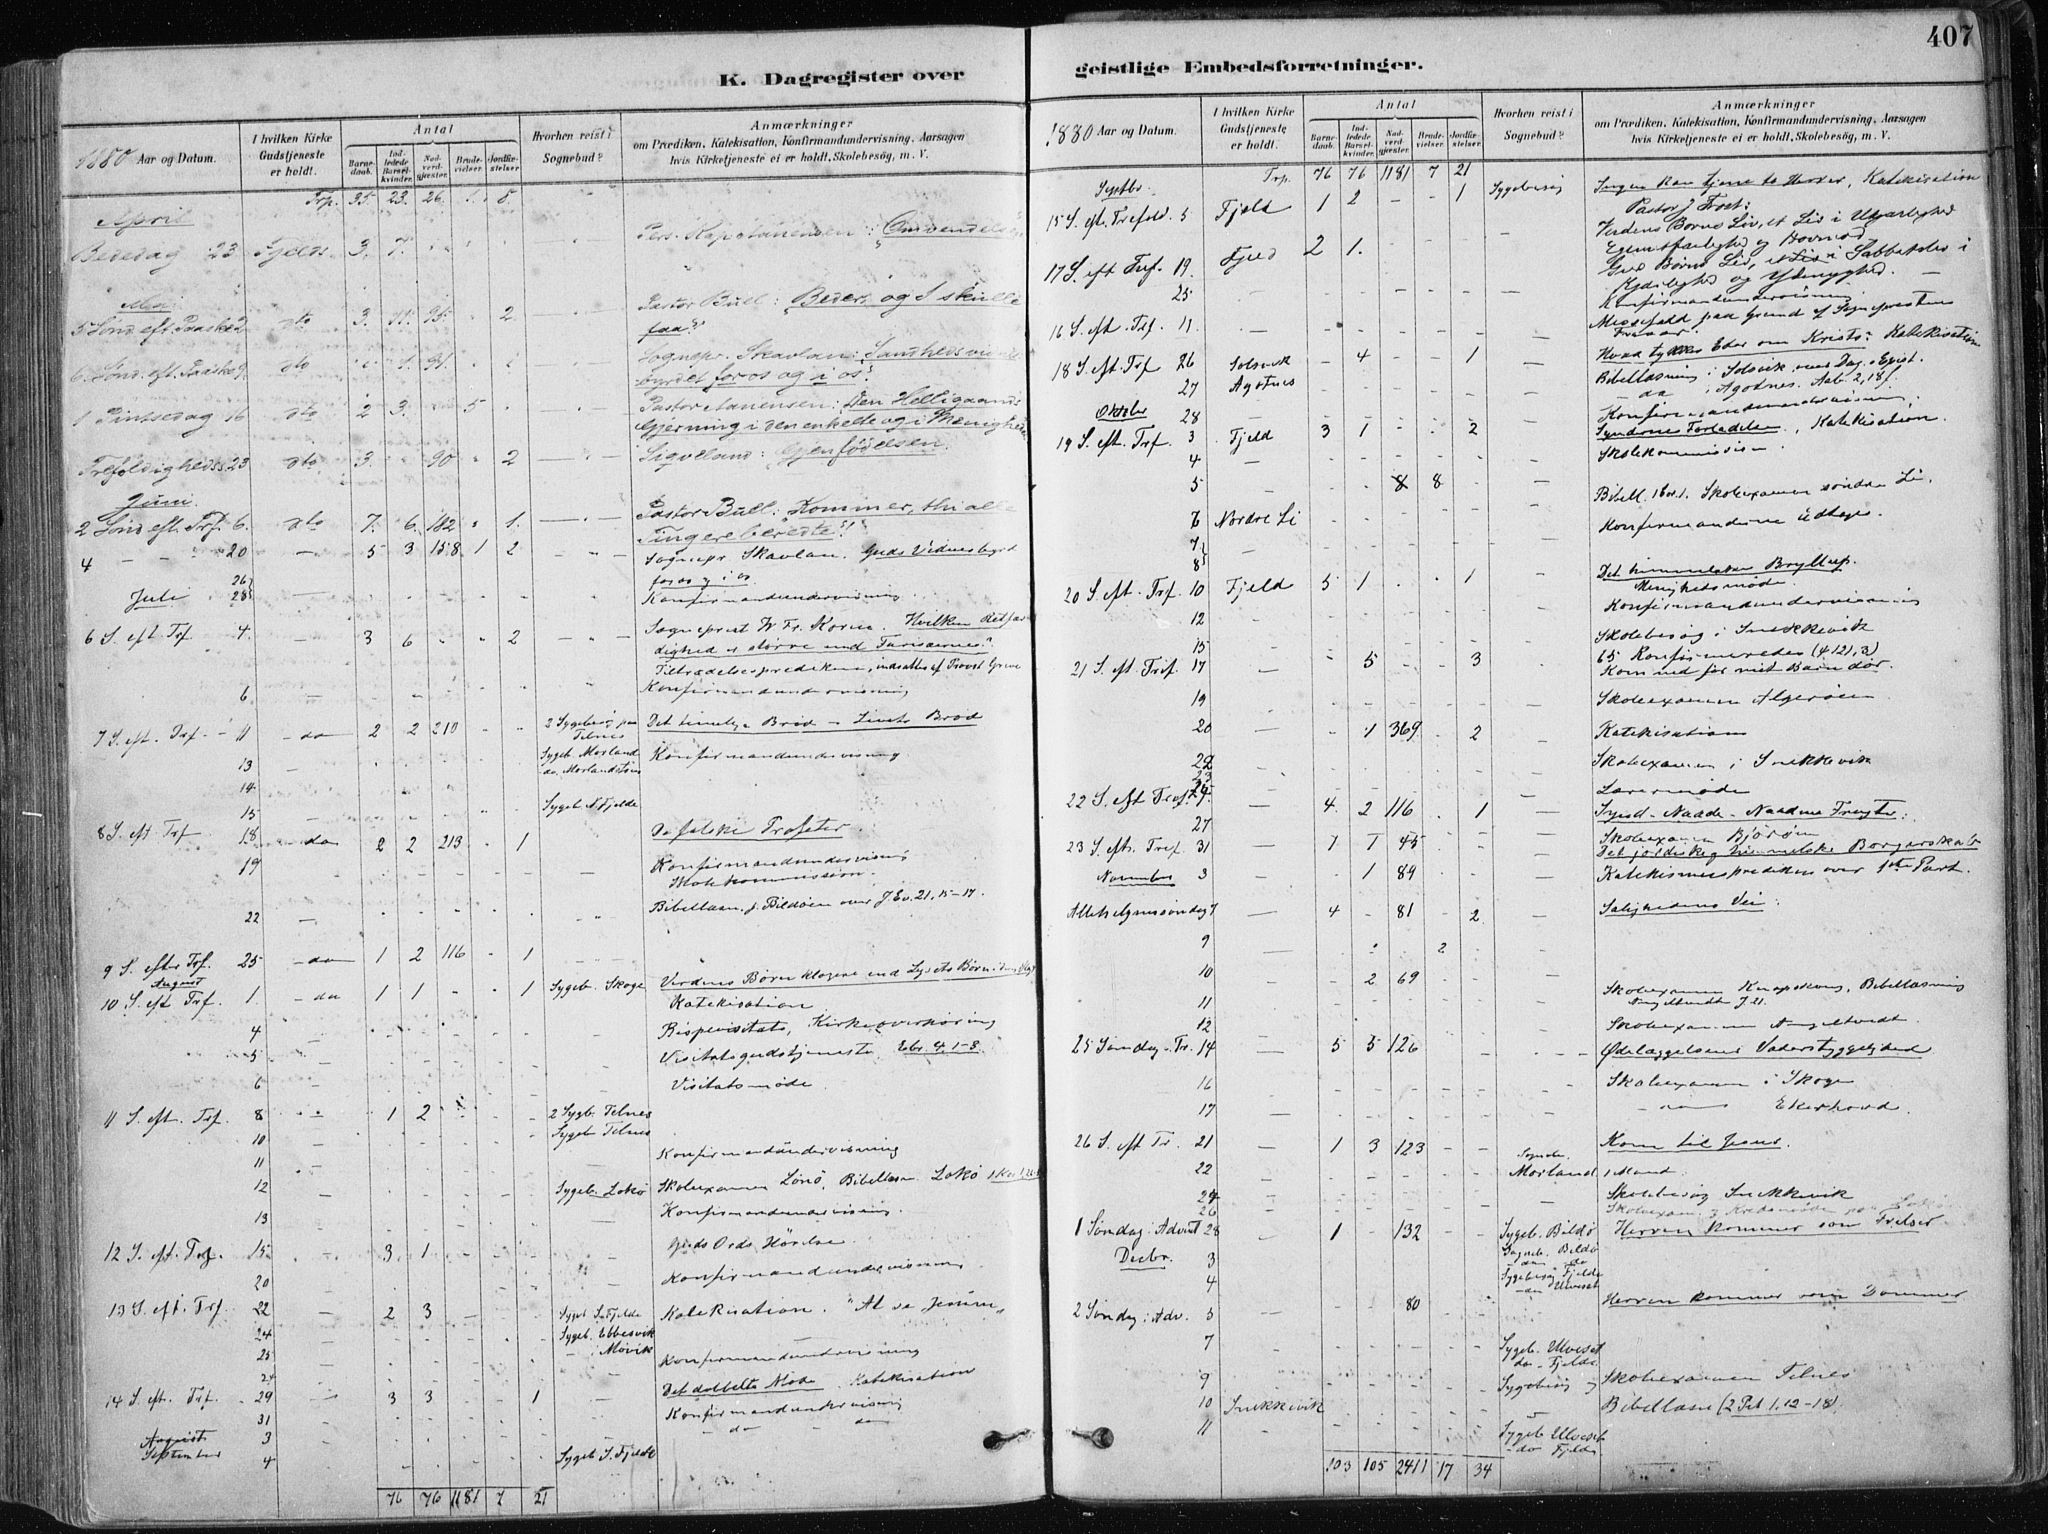 407
K. Dagregister over
1880 Aar og Datum.
I hvilken Kirke Gudstjeneste er holdt.
Antal
Barnedaab. Indledede Barselkvinder. Nadverdgjæster. Brudevielser. Jordfæstelser.
Hvorhen reist i Sognebud?
Anmærkninger
om Prædiken, Katekisation, Konfirmandundervisning, Aarsagen
hvis Kirketjeneste ei er holdt, Skolebesög, m. V.
Trp. 35. 23. 26. 1. 8.
April
Bededag 23 Fjeld 3. 7.
Mai
5 Sönd. eft. Paaske 2 dto 3. 11. 95. 2. Pastor Bull: Beder og I skulle
faa"
6. Sönd. eft. Paaske 9. dto 1. 91. Sognepr. Skavlan: Sandheds
byrdet for os og i os"
1 Pintsedag 16 dto 2 3. 5 Pastor Aanensen: Den Helligaands
Gjerning i den enkelte og i Menighed
Trefoldigheds 23 dto 3. 90 2 Sigveland: Gjenfödelsen.
Juni
2 Sönd eft. Trf. 6. dto 7. 6. 182 1. Pastor Bull: Kommer, thi alle
Ting ere beredte"!
4 - - 20 - 5 3 158 1 2 Sognepr. Skavlan. Guds Vidnesbyrd
for os og i os
26
28 Konfirmandundervisning
Juli
6 S. eft. Trf 4. 3 6 2 Sogneprest W Fr. Koren. Hvilken Retfær
dighed er större end Farisæernes"
Tiltrædelsesprediken, indsattes af Provst Greve
6 Konfirmandundervisning
7 S. eft. Trf. 11 - do 2 2 210 2 Sygebesög paa Telnes Det himmelske Bröd - Livets Bröd
13 Sygeb Morland Konfirmandundervisning
do. Morlandstøen
14
15 Sygeb N Fjelde
8 S. eft Trf 18 - do 2 2 213 1 De falske Profeter.
19 Konfirmandundervisning
Skolekommission.
22 Bibellæsn. p. Bildöen over J. Ev. 21, 15-17.
9 S. efter Trf. 25 - do 1 2 116 1 Verdens Börn klogere end Lysets Börn
August
10 S. eft Trf. 1. - do 1 1 1 Sygeb. Skoge Katekisation
4 Bispevisitats, Kirkeoverhöring
5 Visitatsgudstjeneste Ebr. 4. 1-8
6 Visitatsmöde.
11 S. eft. Trf. 8 1 2 2 Sygb. Telnes
10 Sygeb Telnes
11 Konfirmandundervisning
12 Sygeb. Lokö Skolexamen Lönö, Bibellæsn Lokö
13 Konfirmandundervisning.
12 S. eft. Trf. 15 3 1 Guds Ords Hörelse
20 Konfirmandundervisning
13 S. eft. Trf. 22 2 3 Sygeb S. Fjelde Katekisation. "At se Jesum"
24 Sygeb. Ebbesvik
25 Mövik Konfirmandundervisning
14 S. eft. Trf. 29 3 3 1 Det dobbelte Möde. Katekisation
31 Konfirmandundervisning
August 3 - do - do
September 4 Sygeb S. Fjelde
76 76 1181 7 21
geistlige Embedsforretninger.
1880 Aar og Datum.
I hvilken Kirke Gudstjeneste er holdt.
Antal
Barnedaab. Indledede Barselkvinder. Nadverdgjæster. Brudevielser. Jordfæstelser.
Hvorhen reist i Sognebud?
Anmærkninger
om Prædiken, Katekisation, Konfirmandundervisning, Aarsagen
hvis Kirketjeneste ei er holdt, Skolebesög, m. V.
Trp. 76 76 1181 7 21
Septbr.
15 S. eft. Trefold. 5 Fjeld 1 2 1 Sygebesög Ingen kan tjene to Herrer, Katekisation
Pastor J Frost:
Verdens Börns Liv, et Liv i Ufærlighed
Egenkjærlighed og Hovmod
17 S. eft Trf. 19. Fjeld 2 1. Guds Börns Liv, et Liv i Sabbatslov i
Kjærlighed og Ydmyghed.
25 Konfirmandundervisning
16 S. eft. Trf. 11. Messefald paa Grund af Sognepresten
Fravær.
18 S. eft. Trf 26 Solsvik - 4 1 Hvad tykkes Eder om Kristo: Katekisation
27 Agotnes Bibellæsning i Solsvik over Dag. Epist.
- do i Agotnes. Aab. 2, 18f.
Oktober 28 Konfirmandundervisning.
19 S. eft. Trf. 3 Fjeld 3 1 2 Syndernes Forladelse, Katekisation.
4 Skolekommission
5 8 8
6 Nordre Li Bibell. 1 Cor. 1. Skolexamen söndre Li.
7
8 Konfirmanderne udtoges.
20 S. eft. Trf. 10 Fjeld 5 1 1 Det himmelske Bryllup.
Menighedsmöde
12 Konfirmandundervisning
15 Skolebesög i Snekkevik
21 S. eft. Trf. 17 5 3 65 Konfirmeredes (4 121, 3)
Kom ned för mit Barn dör.
19 Skolexamen Algeröen
20 1 369 2 Katekisation
22 Skolexamen i Snekkevik
23 Læremöde
22 S. eft Tref. 24 4. 2 116 1 Synd - Naade - Naadens Frugter.
27 Skolexamen Björöen
23 S. eft. Tref. 31 1 1 45 Det jordiske og himmelske Borgerskab
November 3 1 89 Katekismusprediken over 1ste Part.
Allehelgenssöndag 7 4 81 2 Salighedens Vei.
9 2
10 2 69
11 Skolexamen Knapskog, Bibellæsning
Angeltvedt J. 21.
12 Skolexamen Angeltvedt.
25 Söndag. Tr. 14 5 5 126 Ødelæggelsens Vederstyggelighed
16 Skolexamen i Skoge
17 - do Ekerhovd.
26 S. eft Tr. 21 1 3 123 Kom til Jesus.
22 Sognebu. Morland 1 Mand.
24 Skolebesög Snekkevik
26
1 Söndag i Advent 28 1 132 Sygeb. Bildö Herren kommer som Frelser.
Decbr. 3 Sogneb. Bildö
- do - do
4 Sygebesög Fjelde
- do Ulveset
2 Söndag i Adv. 5 80 Herren kommer som Dommer
7 Sygeb. Ulveset
do - Fjelde.
9 Sygebesög Skolexamen Telnes
10 Snekkevik Bibellæsn (2 Pet 1. 12-18).
11 Sygeb Ulveset
- do Fjelde
103 105 2411 17 34